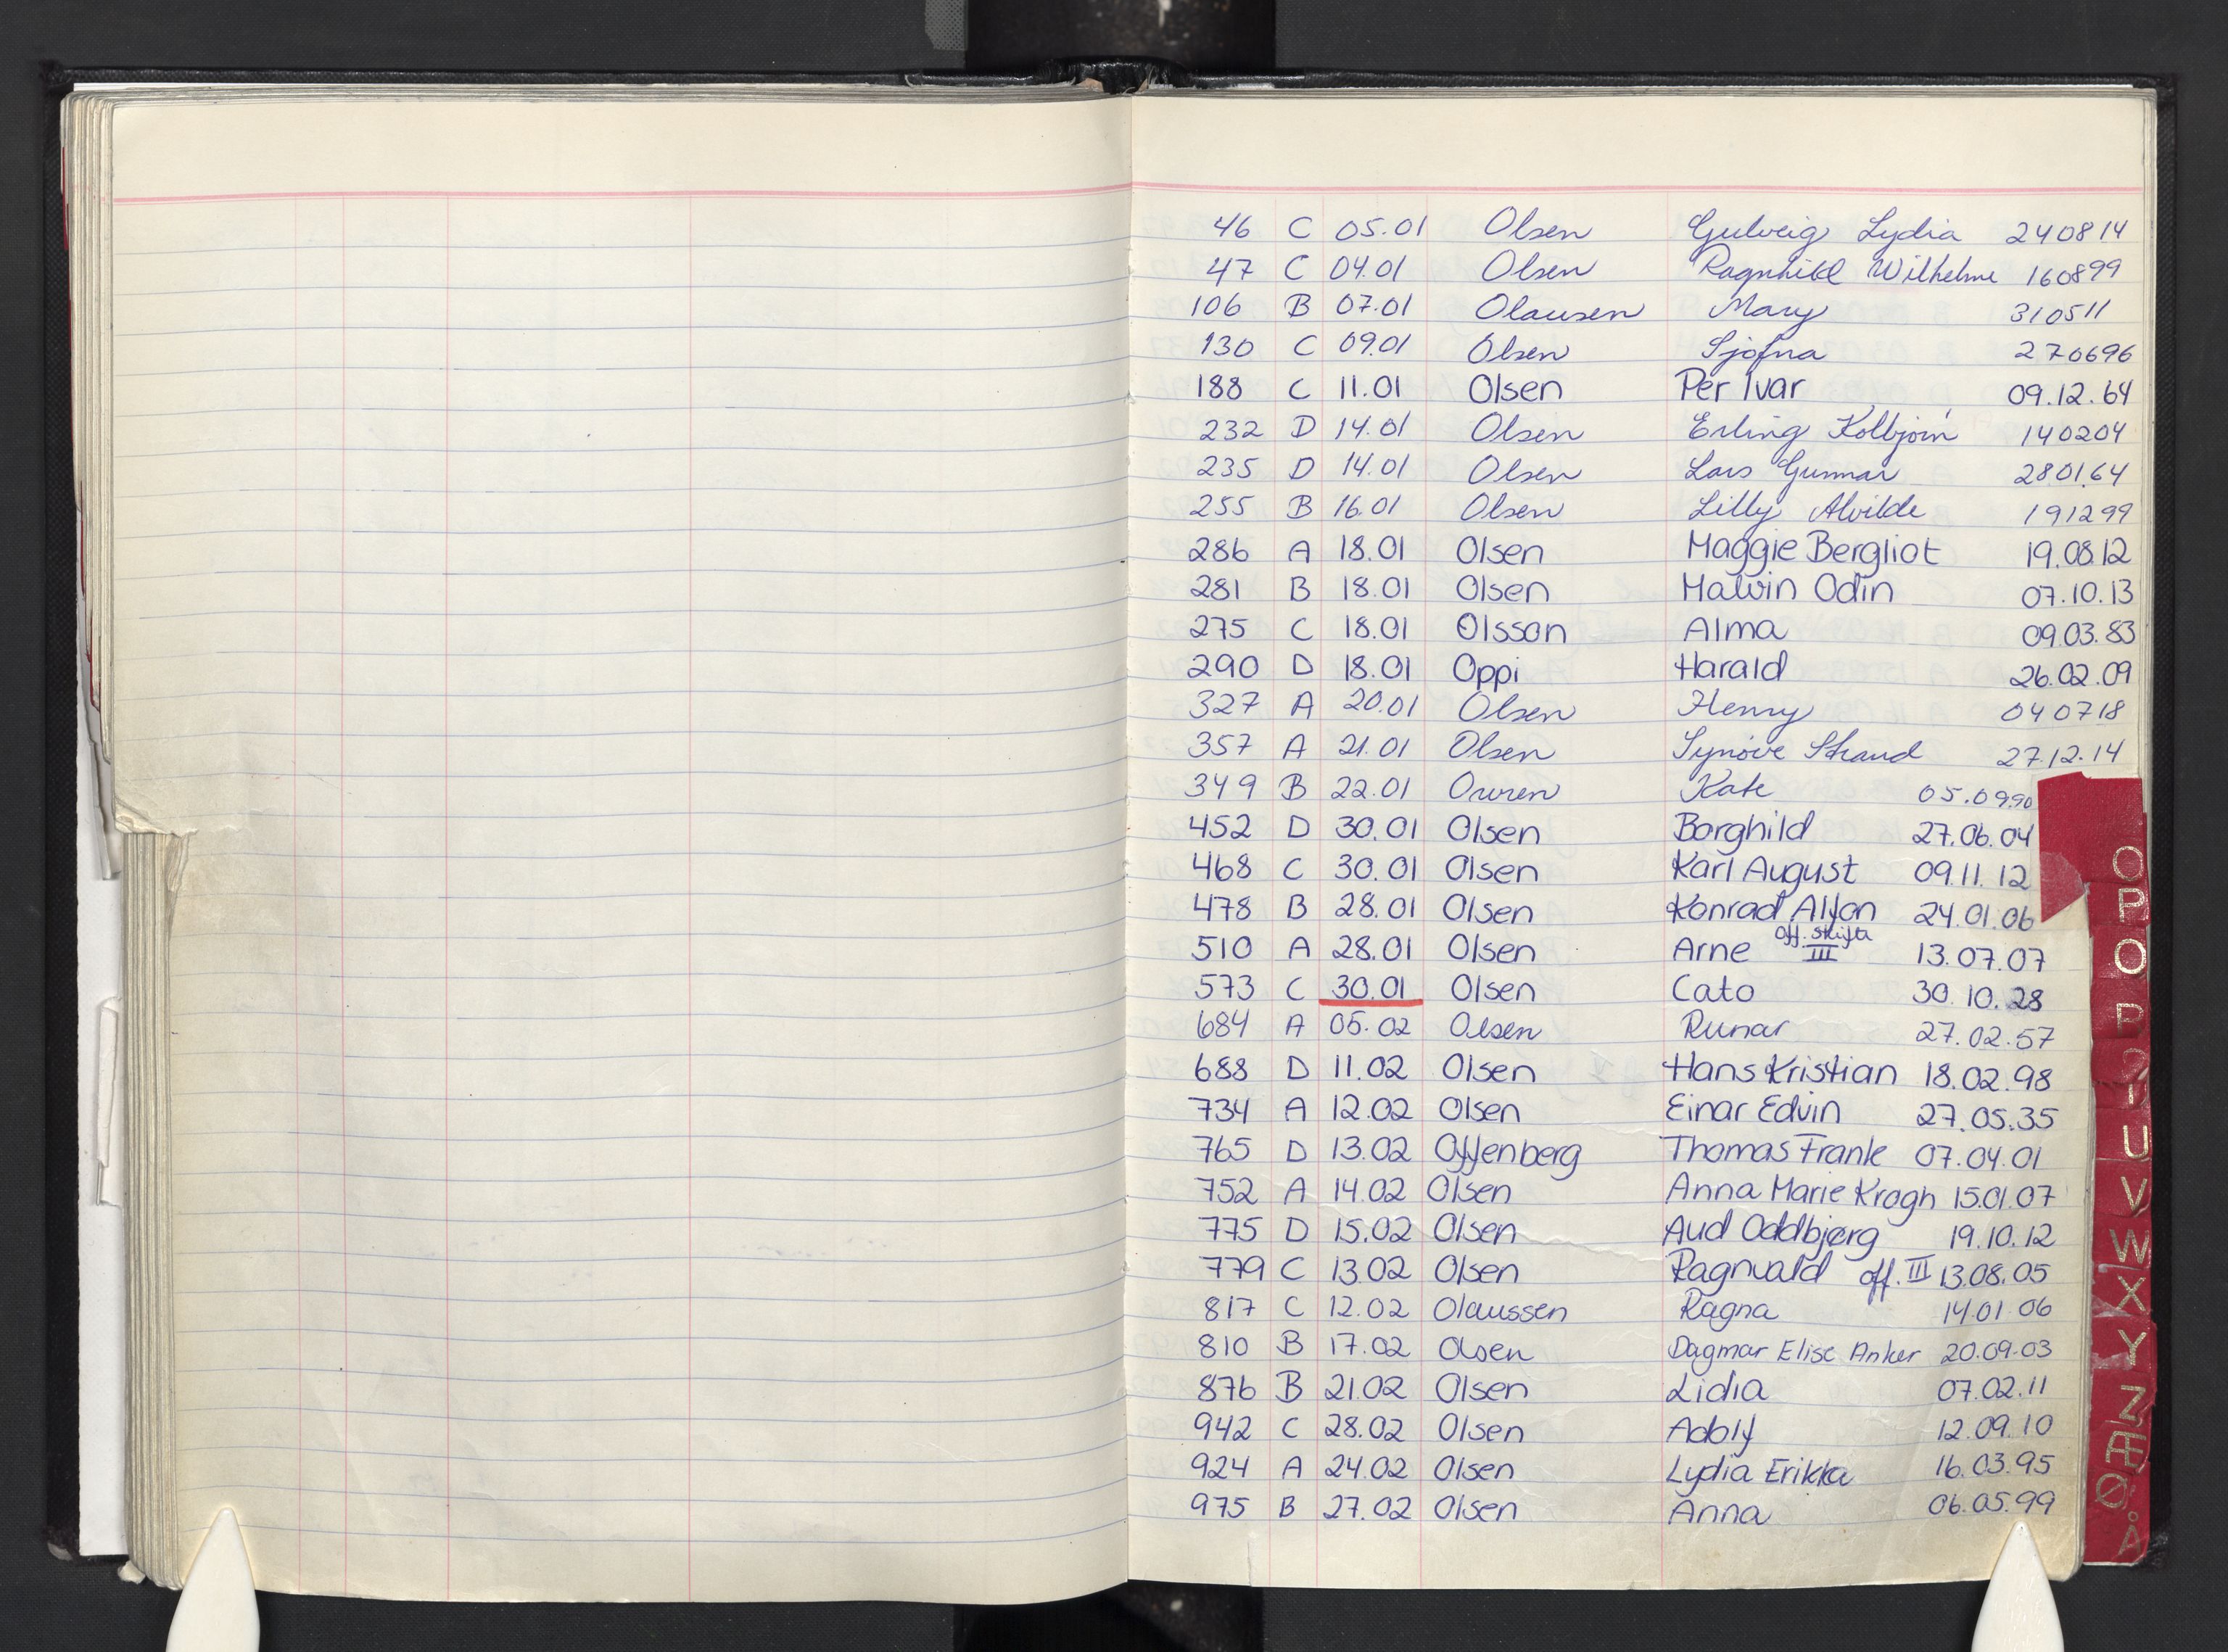 46 C 05.01 Olsen Gulveig Lydia 240814
47 C 04.01 Olsen Ragnhild Wilhelme 160899
106 B 07.01 Olausen Mary 310511
130 C 09.01 Olsen Sjofna 270696
188 C 11.01 Olsen Per Ivar 09.12.64
232 D 14.01 Olsen Erling Kolbjørn 140204
235 D 14.01 Olsen Lars Gunnar 280164
255 B 16.01 Olsen Lilly Alvilde 191299
286 A 18.01 Olsen Maggie Bergliot 19.08.12
281 B 18.01 Olsen Malvin Odin 07.10.13
275 C 18.01 Olsson Alma 09.03.83
290 D 18.01 Oppi Harald 26.02.09
327 A 20.01 Olsen Henry 040718
357 A 21.01 Olsen Synøve Strand 27.12.14
349 B 22.01 Owren Kate 05.09.90
452 D 30.01 Olsen Borghild 27.06.04
468 C 30.01 Olsen Karl August 09.11.12
478 B 28.01 Olsen Konrad Alfon 24.01.06
510 A 28.01 Olsen Arne off. skifte III 13.07.07
573 C 30.01 Olsen Cato 30.10.28
684 A 05.02 Olsen Runar 27.02.57
688 D 11.02 Olsen Hans Kristian 18.02.98
734 A 12.02 Olsen Einar Edvin 27.05.35
765 D 13.02 Offenberg Thomas Frank 07.04.01
752 A 14.02 Olsen Anna Marie Krogh 15.01.07
775 D 15.02 Olsen Aud Oddbjørg 19.10.12
779 C 13.02 Olsen Ragnvald off. III 13.08.05
817 C 12.02 Olaussen Ragna 14.01.06
810 B 17.02 Olsen Dagmar Elise Anker 20.09.03
876 B 21.02 Olsen Lidia 07.02.11
942 C 28.02 Olsen Adolf 12.09.10
924 A 24.02 Olsen Lydia Erikka 16.03.95
975 B 27.02 Olsen Anna 06.05.99
O
P
O
P
U
V
W
X
Y
Z
Æ
Ø
Å